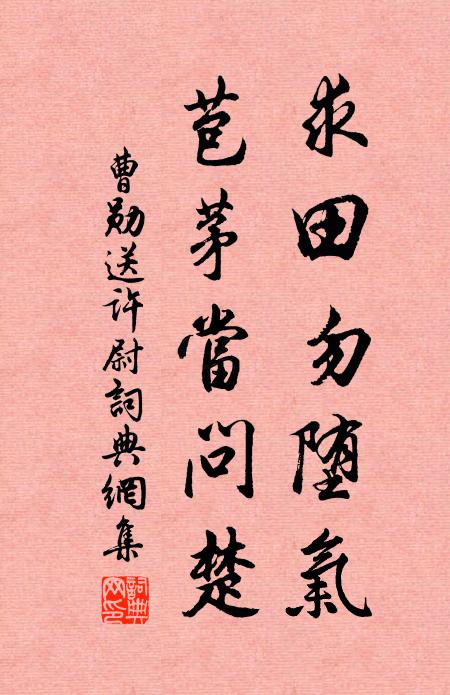 求田勿堕氣
苞茅當問楚
曹勛送許尉詞典網集
詞典網印